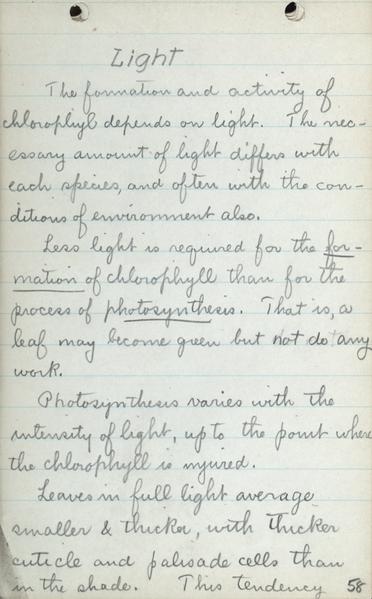 Light
The formation and activity of
chlorophyl depends on light. The nec-
essary amount of light differs with
each species, and often with the con-
ditions of environment also.
Less light is required for the for-
mation of chlorophyll than for the
process of photosynthesis. That is, a
leaf may become green but not do any
work.
Photosynthesis varies with the
intensity of light, up to the point where
the chlorophyll is injured.
Leaves in full light average
smaller & thicker, with thicker
cuticle and palisade cells than
in the shade. This tendency 58